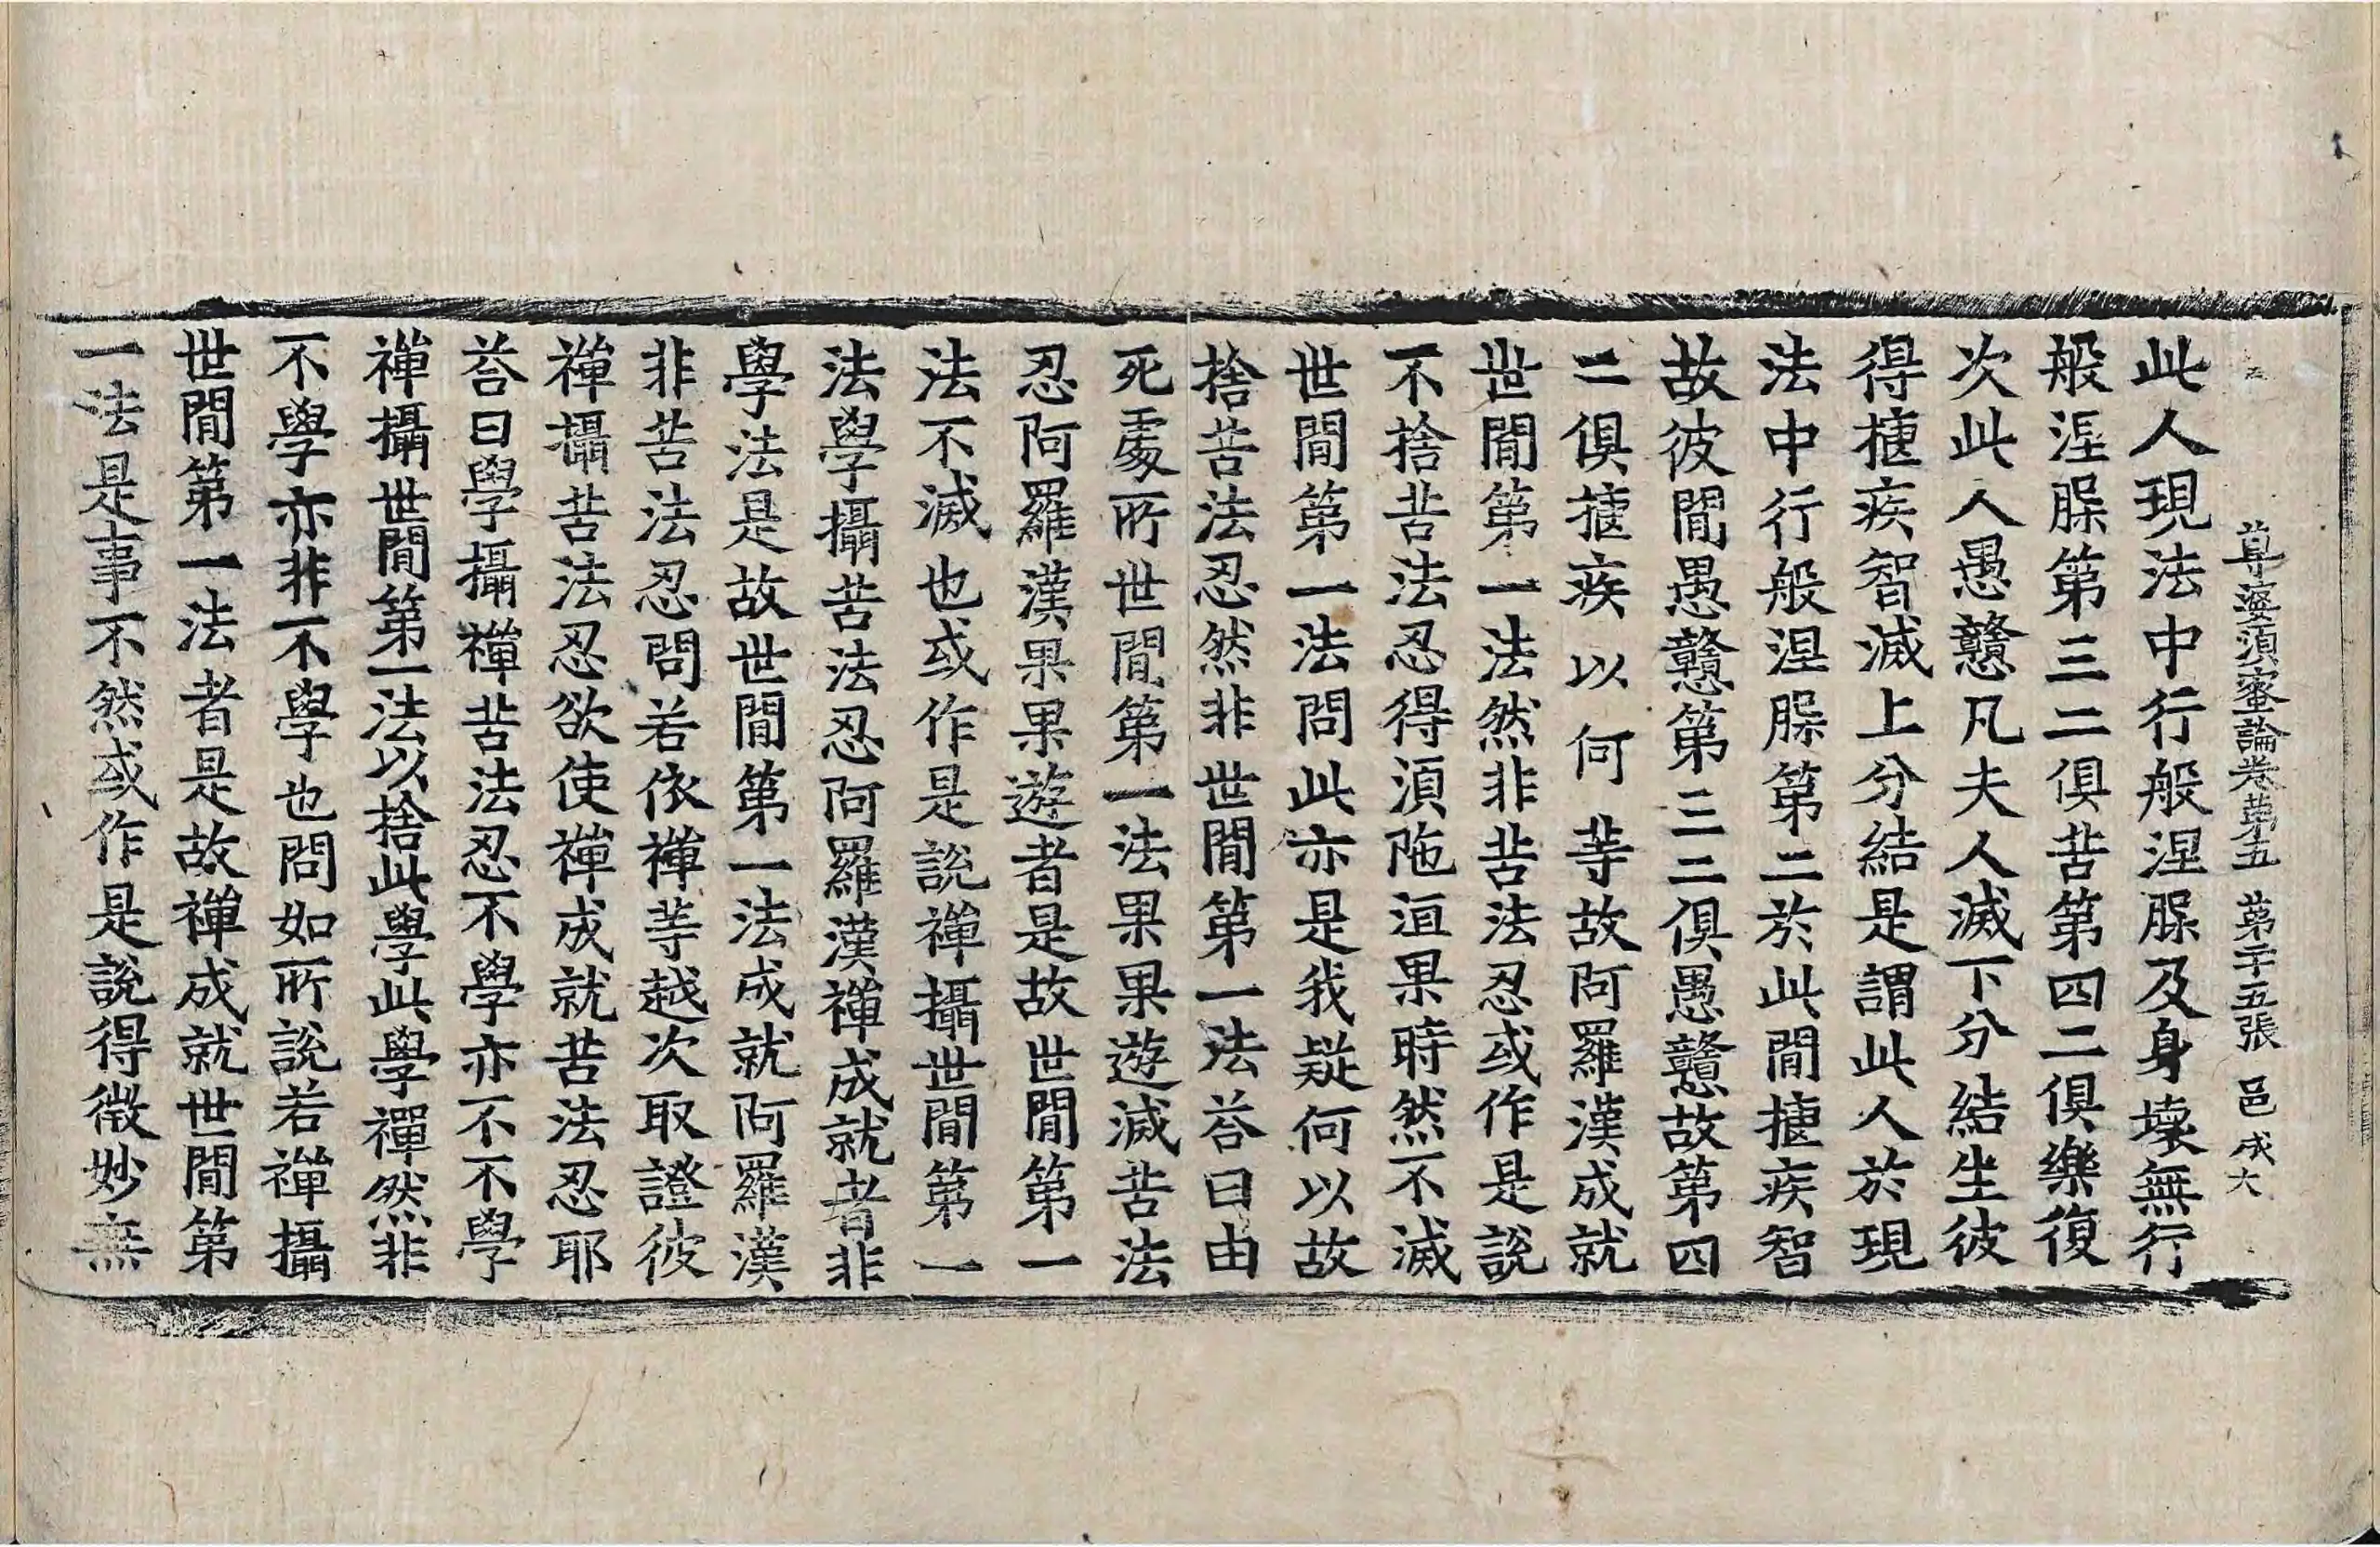 尊婆須蜜論卷第五 第二十五張 邑 成大
此人現法中行般涅脲及身壞無行
般涅脲第三二俱苦第四二俱樂復
次此人愚戇凡夫人滅下分結生彼
得揰疾智滅上分結是謂此人於現
法中行般涅脲第二於此間揰疾智
故彼間愚戇第三二俱愚戇故第四
二俱揰疾以何等故阿羅漢成就
世間第一法然非苦法忍或作是說
不捨苦法忍得湏陁洹果時然不滅
世間第一法問此亦是我疑何以故
捨苦法忍然非世間第一法荅曰由
死處所世間第一法果果遊滅苦法
忍阿羅漢果果遊者是故世間第一
法不滅也或作是說禪攝世間第一
法學攝苦法忍阿羅漢禪成就者非
學法是故世間第一法成就阿羅漢
非苦法忍問若依禪等越次取證彼
禪攝苦法忍欲使禪成就苦法忍耶
荅曰學攝禪苦法忍不學亦不不學
禪攝世間第一法以捨此學此學禪然非
不學亦非不學也問如所說若禪攝
世間第一法者是故禪成就世間第
一法是事不然或作是說得微妙無